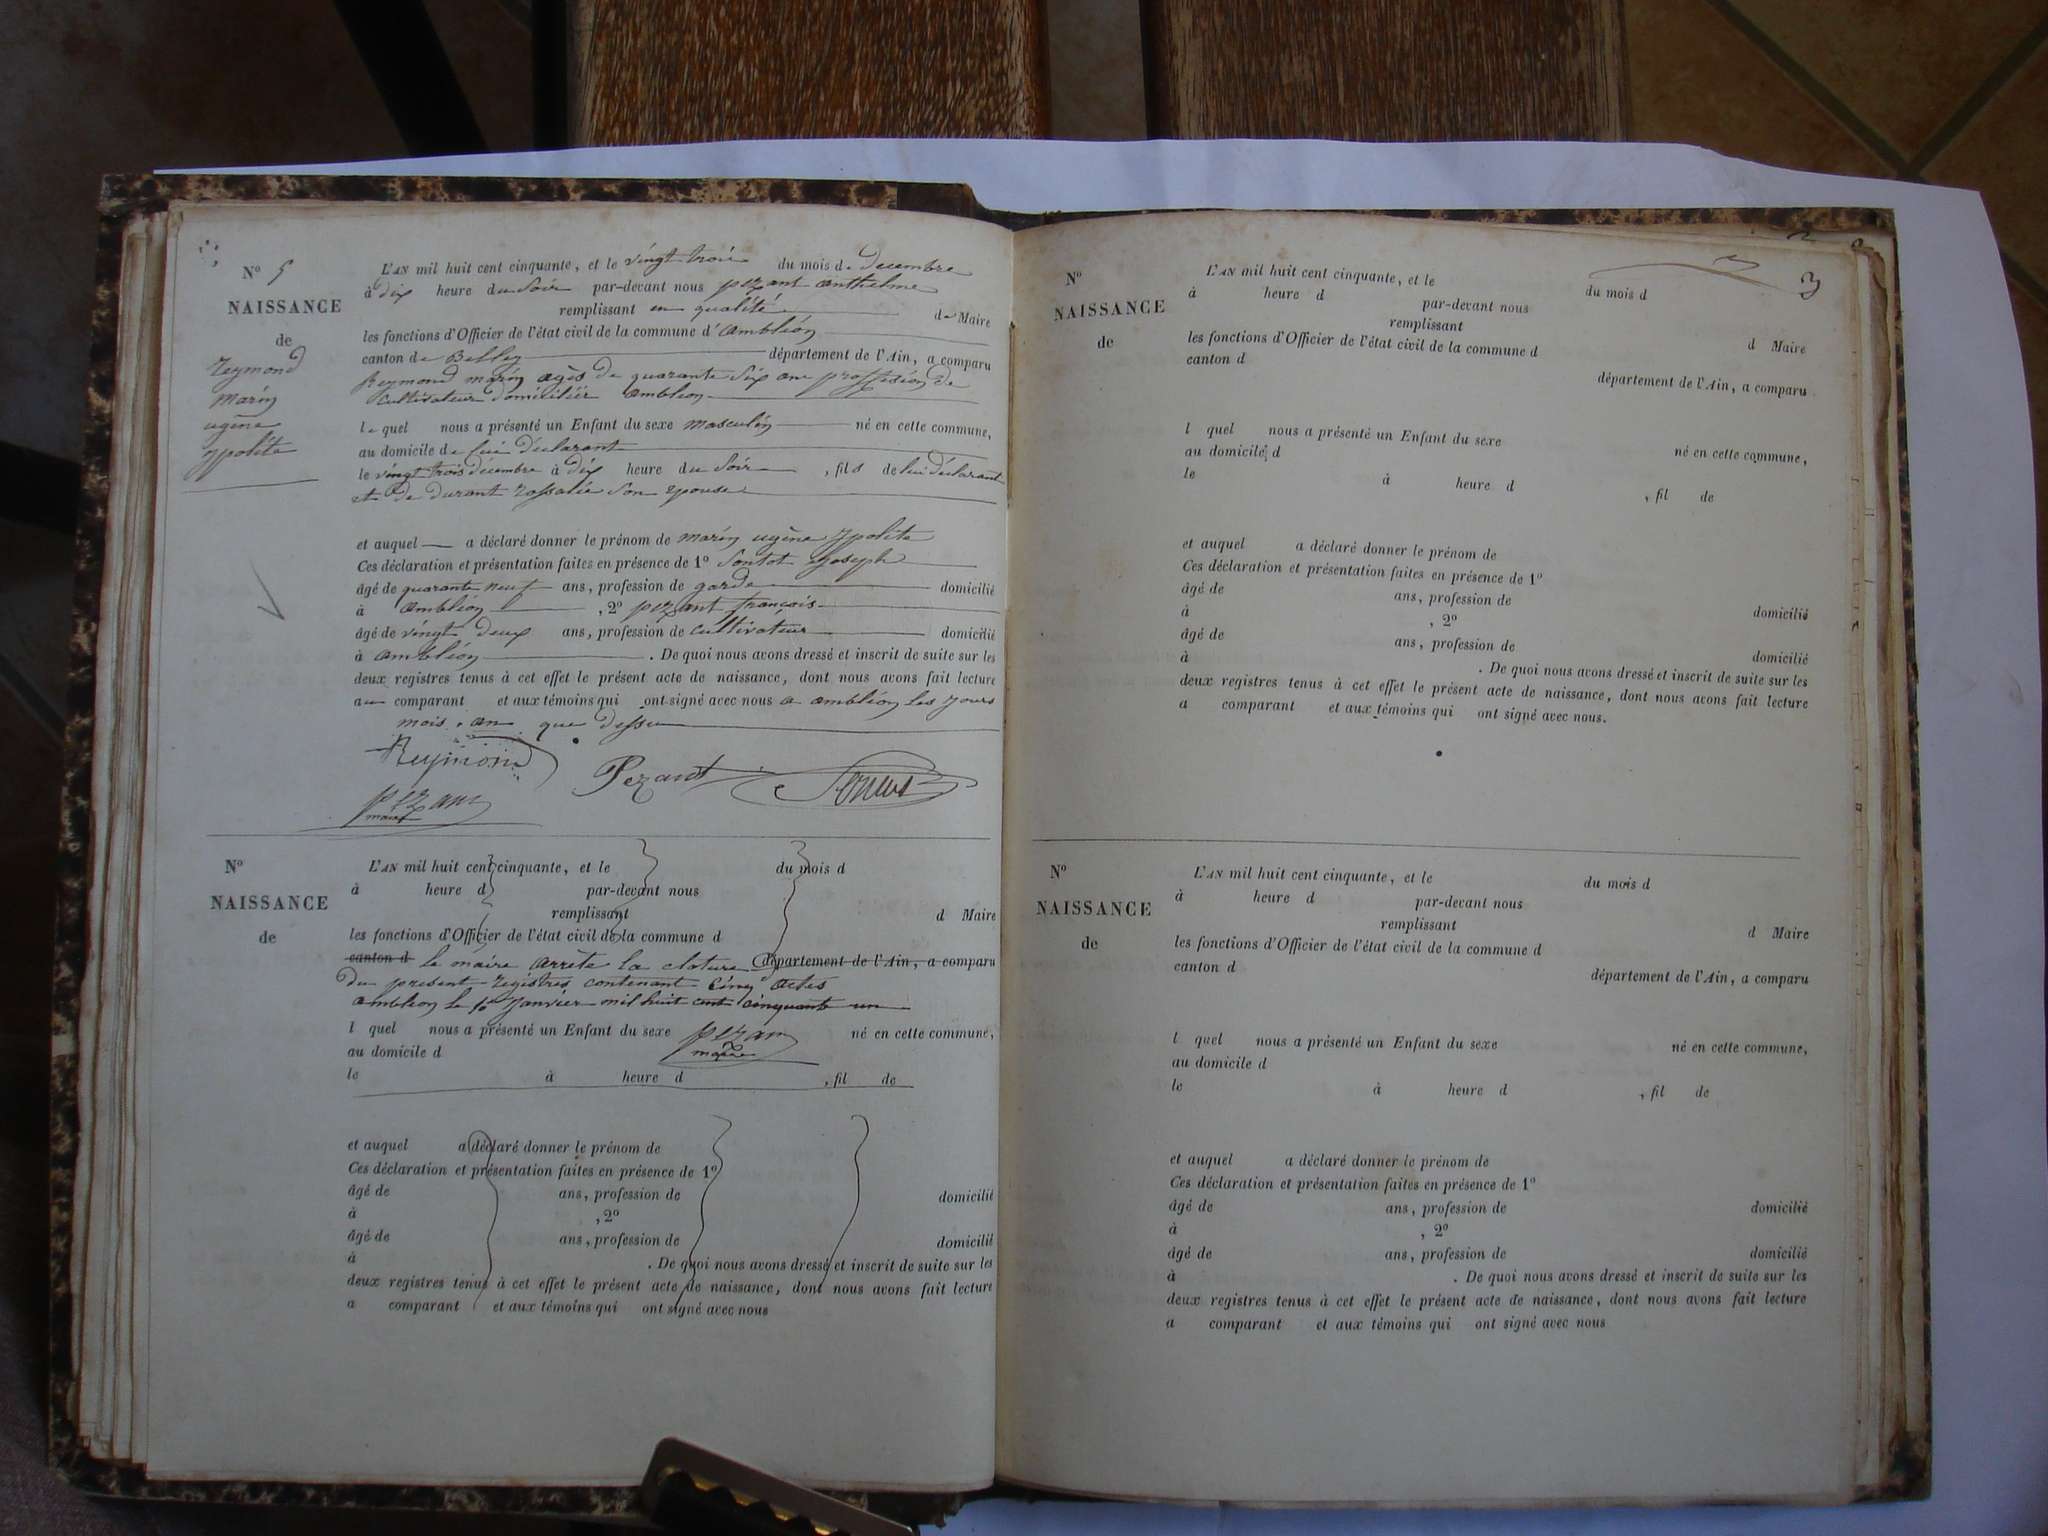 N° 5
NAISSANCE
de
reymond
marin
ugène
ypolite
L'AN mil huit cent cinquante, et le vingt trois du mois de decembre
à dix heure du soir par-devant nous pezant anthelme
remplissant en qualité de Maire
les fonctions d'Officier de l'état civil de la commune d'ambléon
canton de Belley département de l'Ain, a comparu
Reymond marin agès de quarante six ans proffesion de
cultivateur domiciliér ambléon
le quel nous a présenté un Enfant du sexe masculin né en cette commune,
au domicile de lui déclarant
le vingt trois décembre à dix heure du soir, fils de lui déclarant
et de durant rossalie son epouse
et auquel a déclaré donner le prénom de marin ugène ypolite
Ces déclaration et présentation faites en présence de 1° Sontot Joseph
âgé de quarante neuf ans, profession de garde domicilié
à ambléon, 2° pezant françois
âgé de vingt deux ans, profession de cultivateur domicilié
à ambléon. De quoi nous avons dressé et inscrit de suite sur les
deux registres tenus à cet effet le présent acte de naissance, dont nous avons fait lecture
au comparant et aux témoins qui ont signé avec nous a ambléon les jours
mois an que dessu
Reymond
Pezant
pezant
maire
N°
NAISSANCE
de
L'AN mil huit cent cinquante, et le du mois d
à heure d par-devant nous
remplissant d Maire
les fonctions d'Officier de l'état civil de la commune d
canton d le maire arrète la cloture département de l'Ain, a comparu
du present registres contenant cinq actes
ambléon le 1er janvier mil huit cent cinquante un
l quel nous a présenté un Enfant du sexe né en cette commune,
pezant
maire
au domicile d
le à heure d , fil de
et auquel a déclaré donner le prénom de
Ces déclaration et présentation faites en présence de 1°
âgé de ans, profession de domicilié
à , 2°
âgé de ans, profession de domicilié
à . De quoi nous avons dressé et inscrit de suite sur les
deux registres tenus à cet effet le présent acte de naissance, dont nous avons fait lecture
a comparant et aux témoins qui ont signé avec nous
3
N°
NAISSANCE
de
L'AN mil huit cent cinquante, et le du mois d
à heure d par-devant nous
remplissant d Maire
les fonctions d'Officier de l'état civil de la commune d
canton d département de l'Ain, a comparu
l quel nous a présenté un Enfant du sexe né en cette commune,
au domicile d
le à heure d , fil de
et auquel a déclaré donner le prénom de
Ces déclaration et présentation faites en présence de 1°
âgé de ans, profession de domicilié
à , 2°
âgé de ans, profession de domicilié
à . De quoi nous avons dressé et inscrit de suite sur les
deux registres tenus à cet effet le présent acte de naissance, dont nous avons fait lecture
a comparant et aux témoins qui ont signé avec nous.
N°
NAISSANCE
de
L'AN mil huit cent cinquante, et le du mois d
à heure d par-devant nous
remplissant d Maire
les fonctions d'Officier de l'état civil de la commune d
canton d département de l'Ain, a comparu
l quel nous a présenté un Enfant du sexe né en cette commune,
au domicile d
le à heure d , fil de
et auquel a déclaré donner le prénom de
Ces déclaration et présentation faites en présence de 1°
âgé de ans, profession de domicilié
à , 2°
âgé de ans, profession de domicilié
à . De quoi nous avons dressé et inscrit de suite sur les
deux registres tenus à cet effet le présent acte de naissance, dont nous avons fait lecture
a comparant et aux témoins qui ont signé avec nous